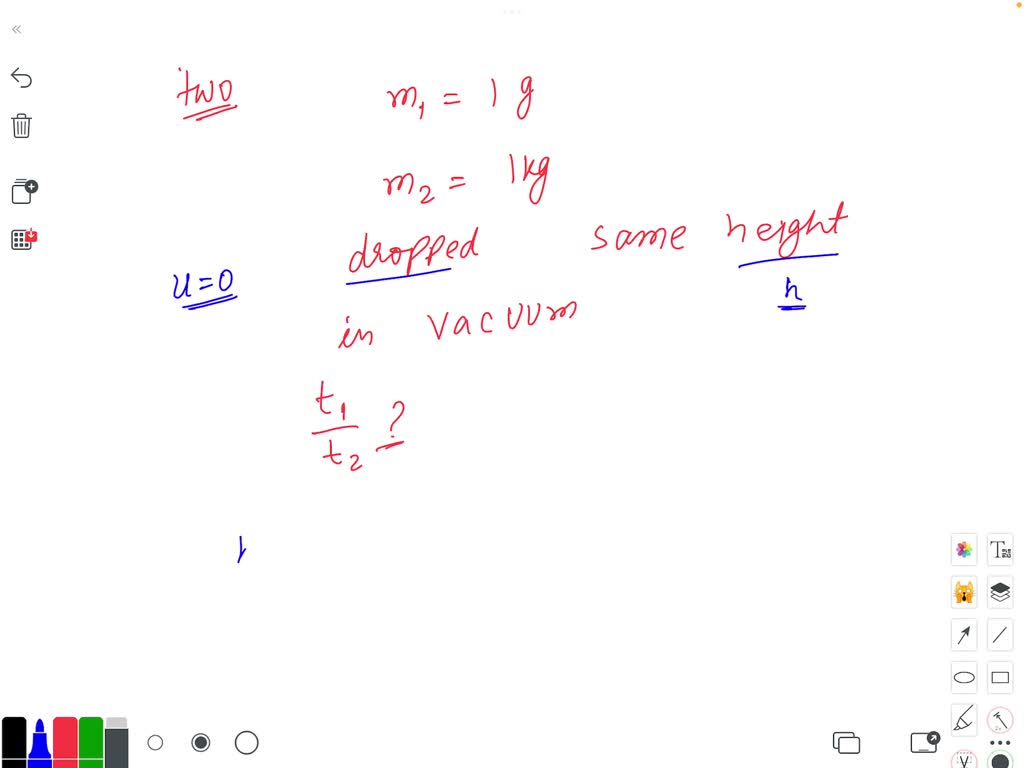 two m₁ = 1 g
m₂ = 1kg
dropped same height
u=0 h
in vacuum
t₁
t₂ ?